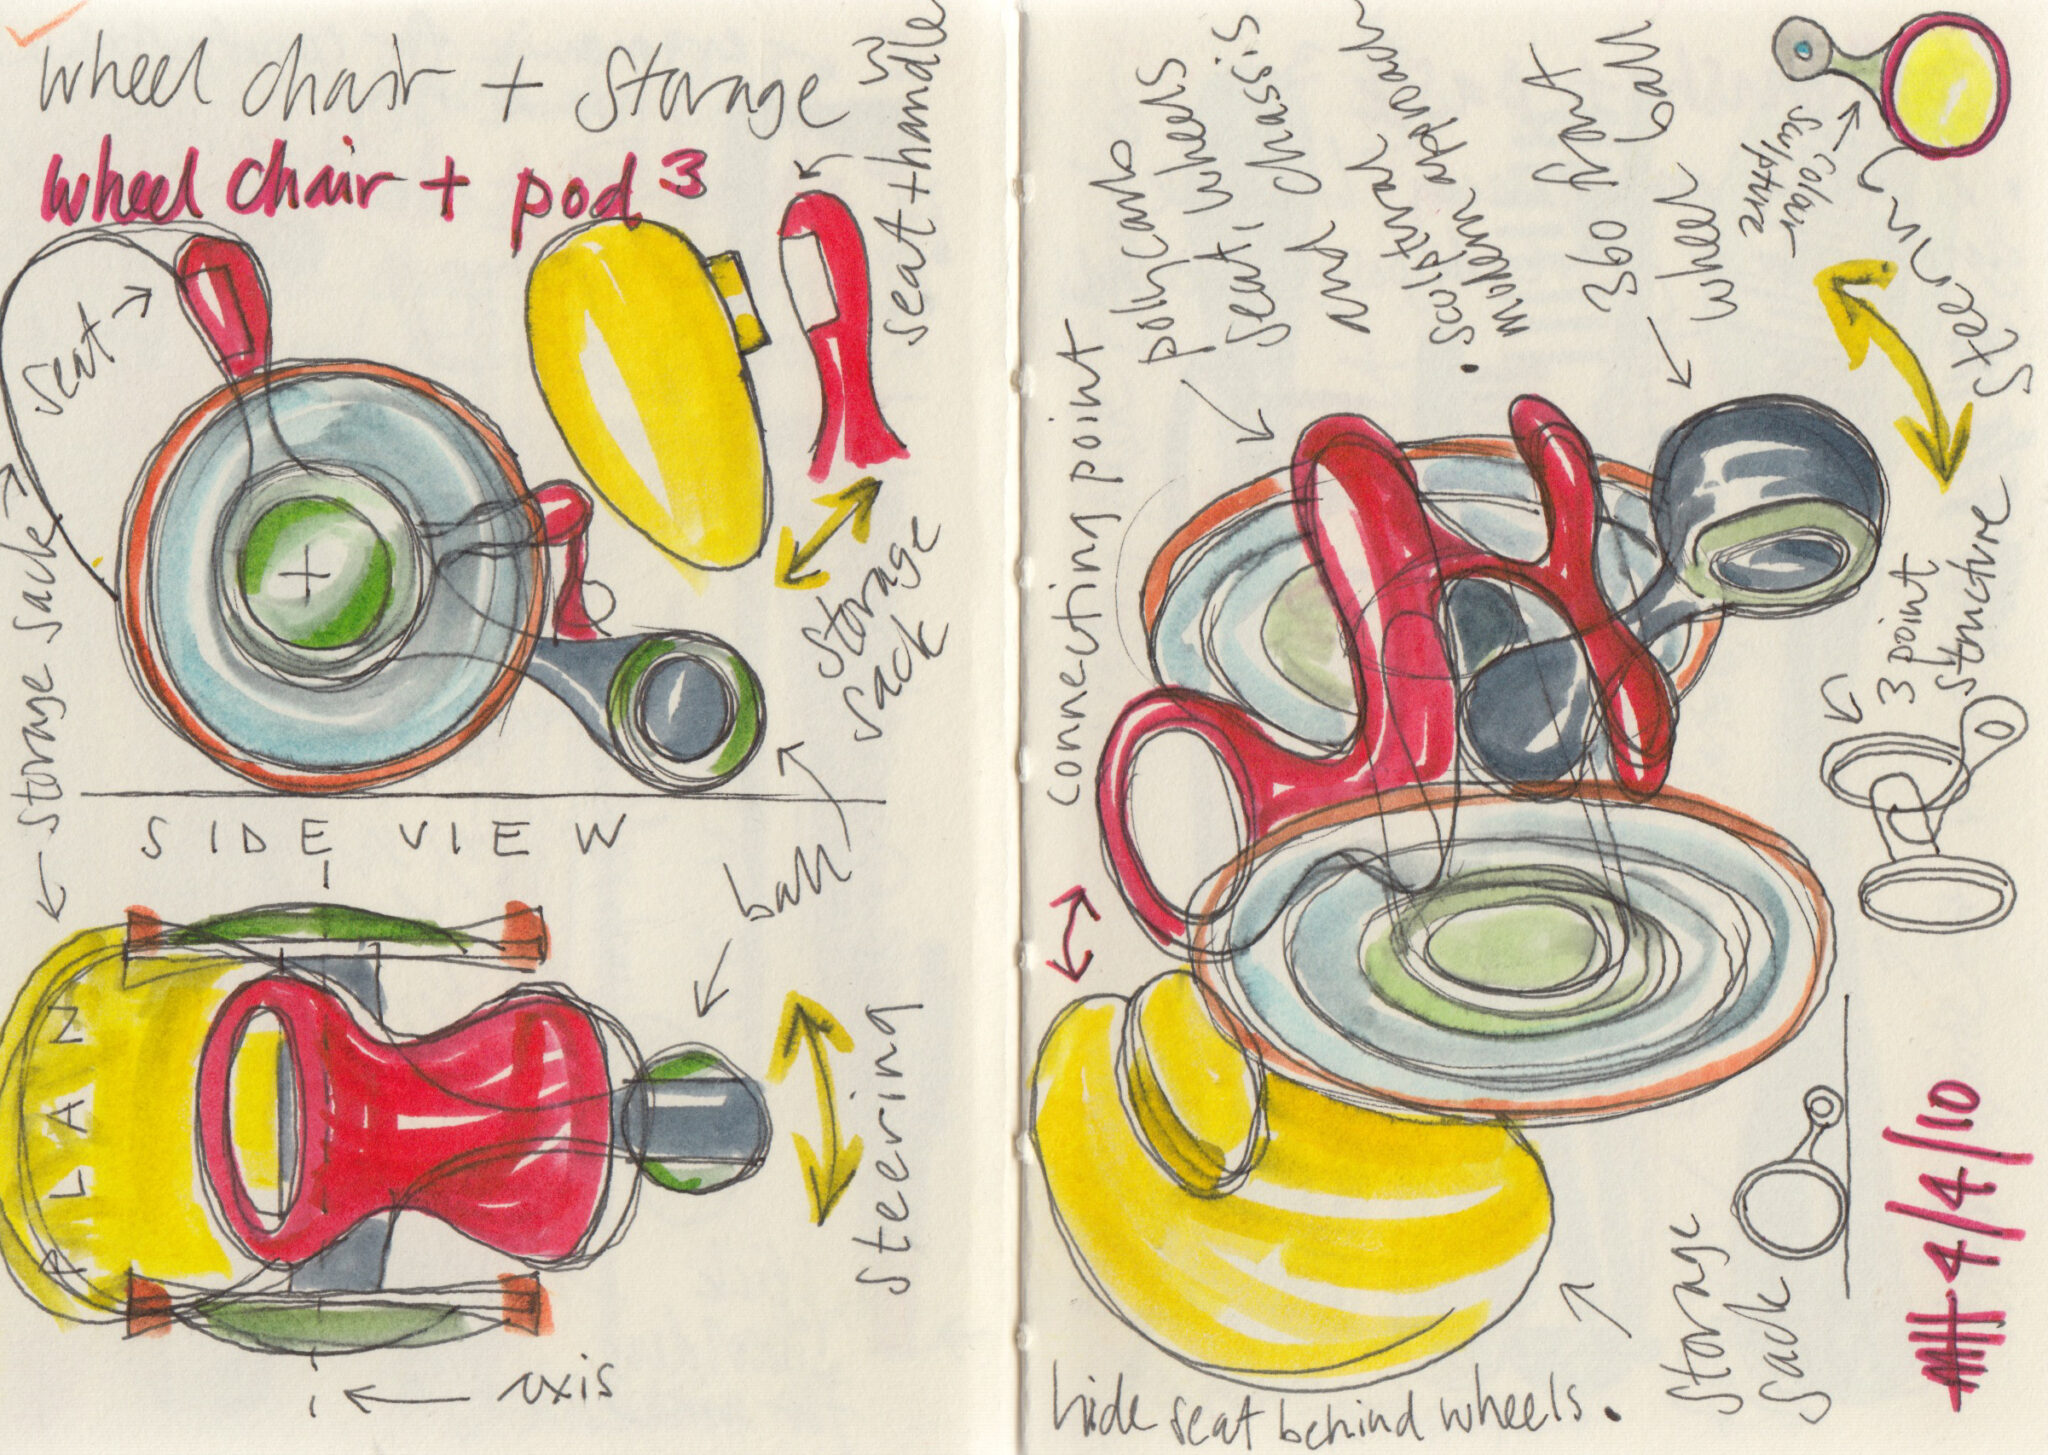 wheel chair + storage 3
wheel chair + pod 3
seat + handle
seat
storage sack
storage
sack
SIDE VIEW
ball
PLAN
steering
axis
connecting point
polly carb
seat, wheels
and chassis
. sculptural
modern approach
360 Rant
wheel ball
colour
sculpture
steering
3 point
structure
storage
sack
4/4/10
hide seat behind wheels.